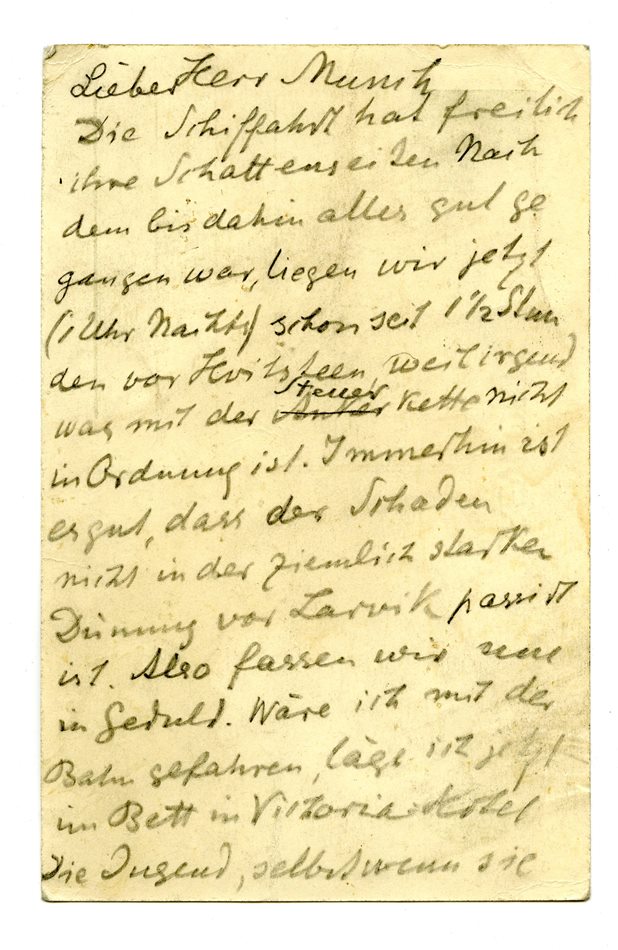 Lieber Herr Munch
Die Schiffahrt hat freilich
ihre Schattenseiten Nach
dem bis dahin alles gut ge
gangen war, liegen wir jetzt
(1 Uhr Nachts) schon seit 1½ Stun
den vor Hvitsteen, weil irgend
was mit der Anker Steuer kette nicht
in Ordnung ist. Immerhin ist
es gut, dass der Schaden
nicht in der ziemlich starken
Dünung vor Larvik passirt
ist. Also fassen wir uns
in Geduld. Wäre ich mit der
Bahn gefahren, läge ich jetzt
im Bett in Victoria-Hotel
Die Jugend, selbst wenn sie